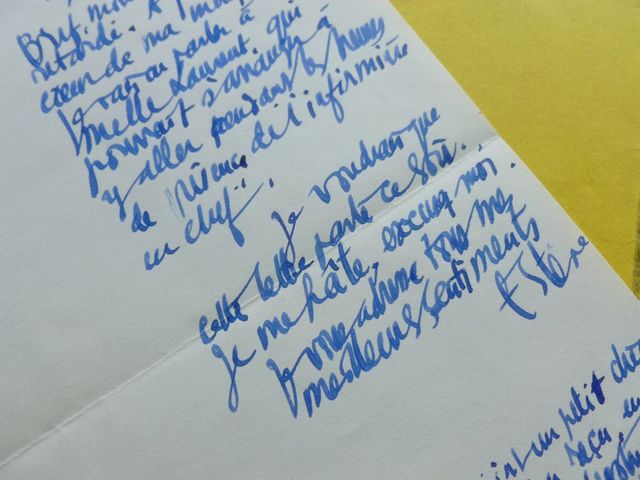 Bref, mon
retardé. A
cœur de ma
Je vais en parler à
Melle Laurent, qui
pourrait s'arranger à
y aller pendant les heures
de présence de l'infirmière
en chef.
Je voudrais que
cette lettre parte ce soir.
Je me hâte, excusez moi.
Je vous adresse tous mes
meilleurs sentiments
un petit
reçu, en